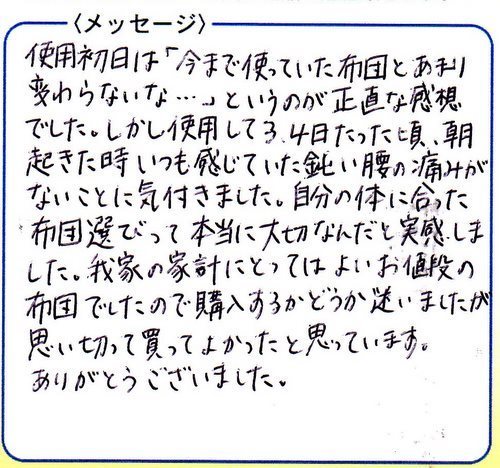 〈メッセージ〉
使用初日は「今まで使っていた布団とあまり
変わらないな…」というのが正直な感想
でした。しかし使用して3、4日たった頃、朝
起きた時いつも感じていた鈍い腰の痛みが
ないことに気付きました。自分の体に合った
布団選びって本当に大切なんだと実感しま
した。我家の家計にとってはよいお値段の
布団でしたので購入するかどうか迷いましたが
思い切って買ってよかったと思っています。
ありがとうございました。